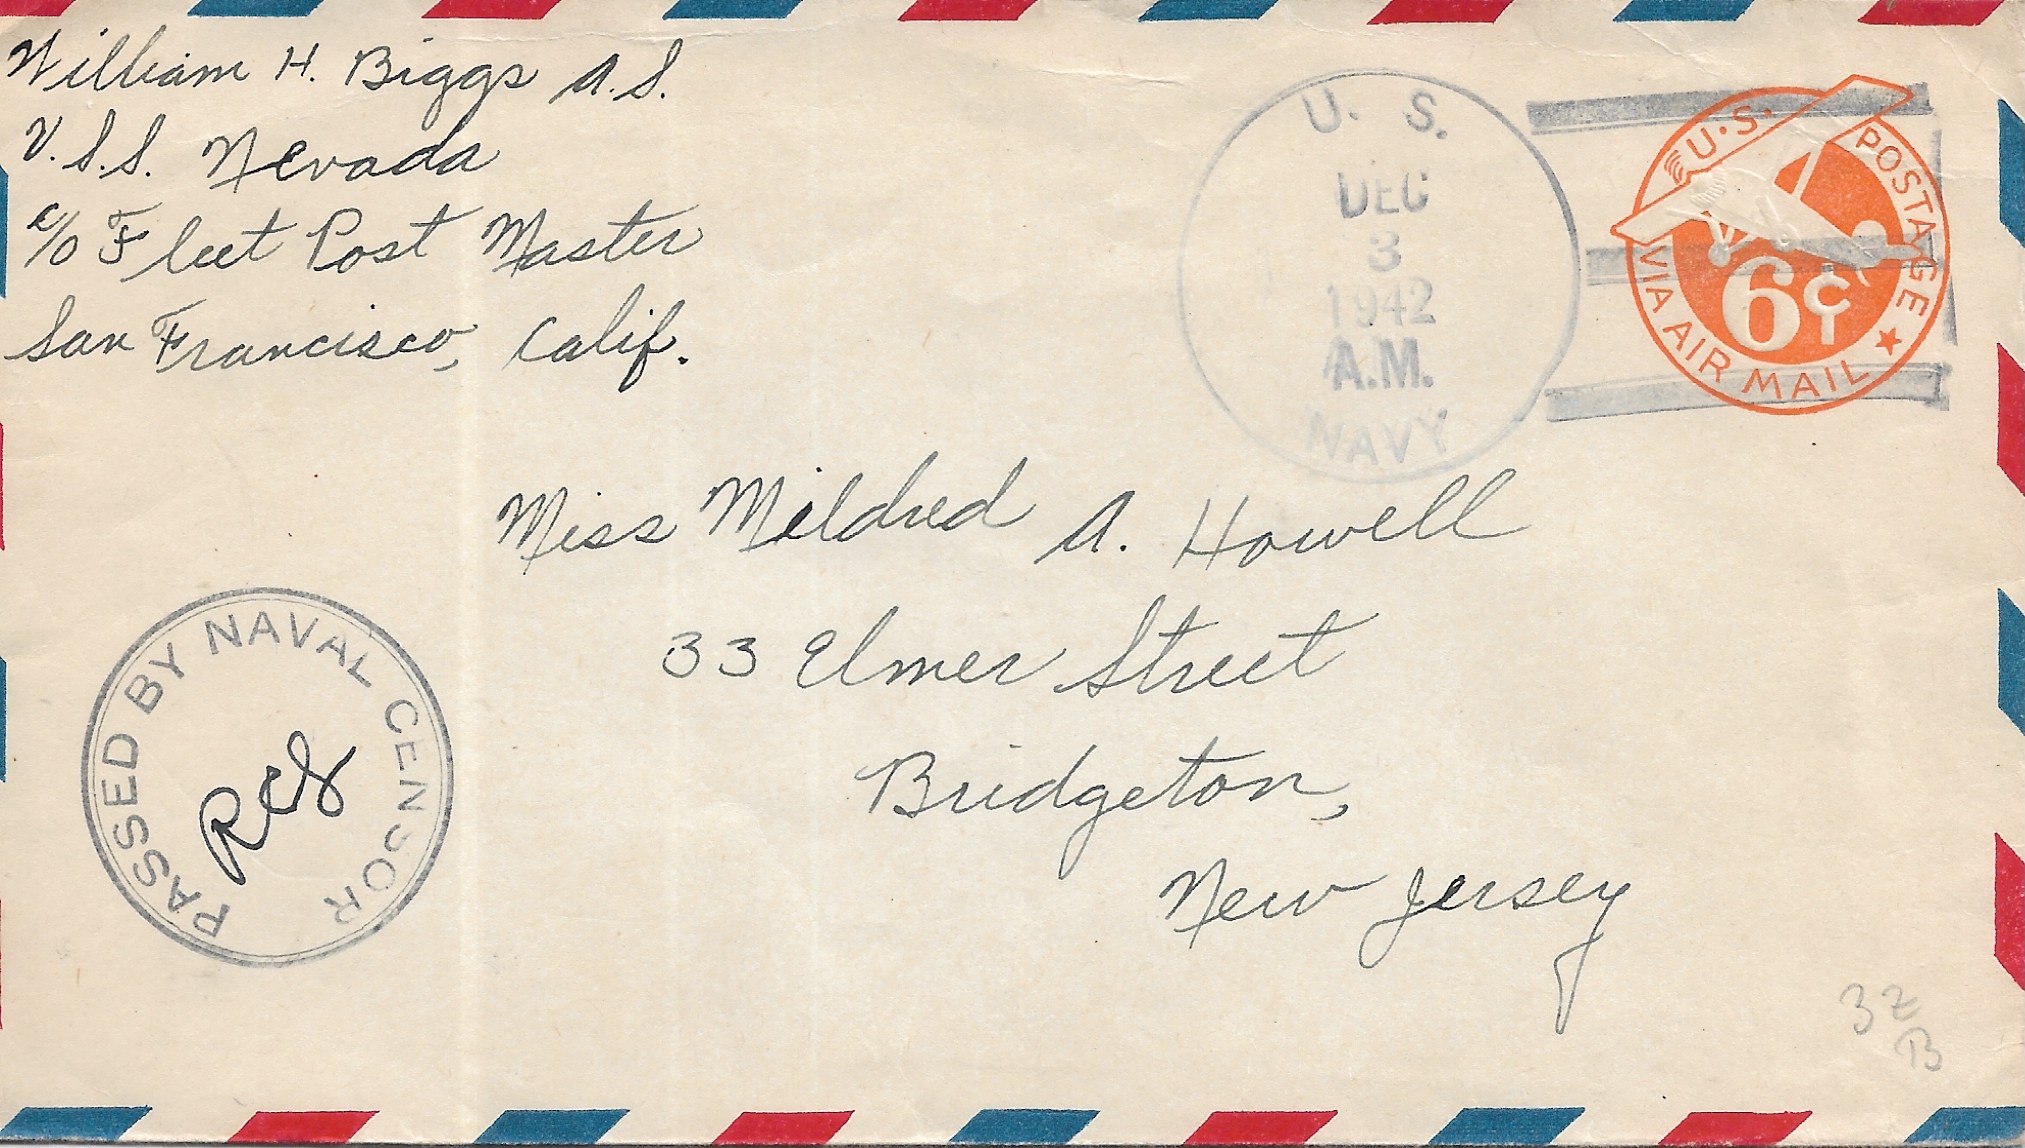 William H. Biggs A.S.
U.S.S. Nevada
c/o Fleet Post Master
San Francisco, Calif.
U. S.
DEC
3
1942
A.M.
NAVY
U.S. POSTAGE
6¢
VIA AIR MAIL
Miss Mildred A. Howell
33 Elmer Street
Bridgeton,
New Jersey
PASSED BY NAVAL CENSOR
32
B